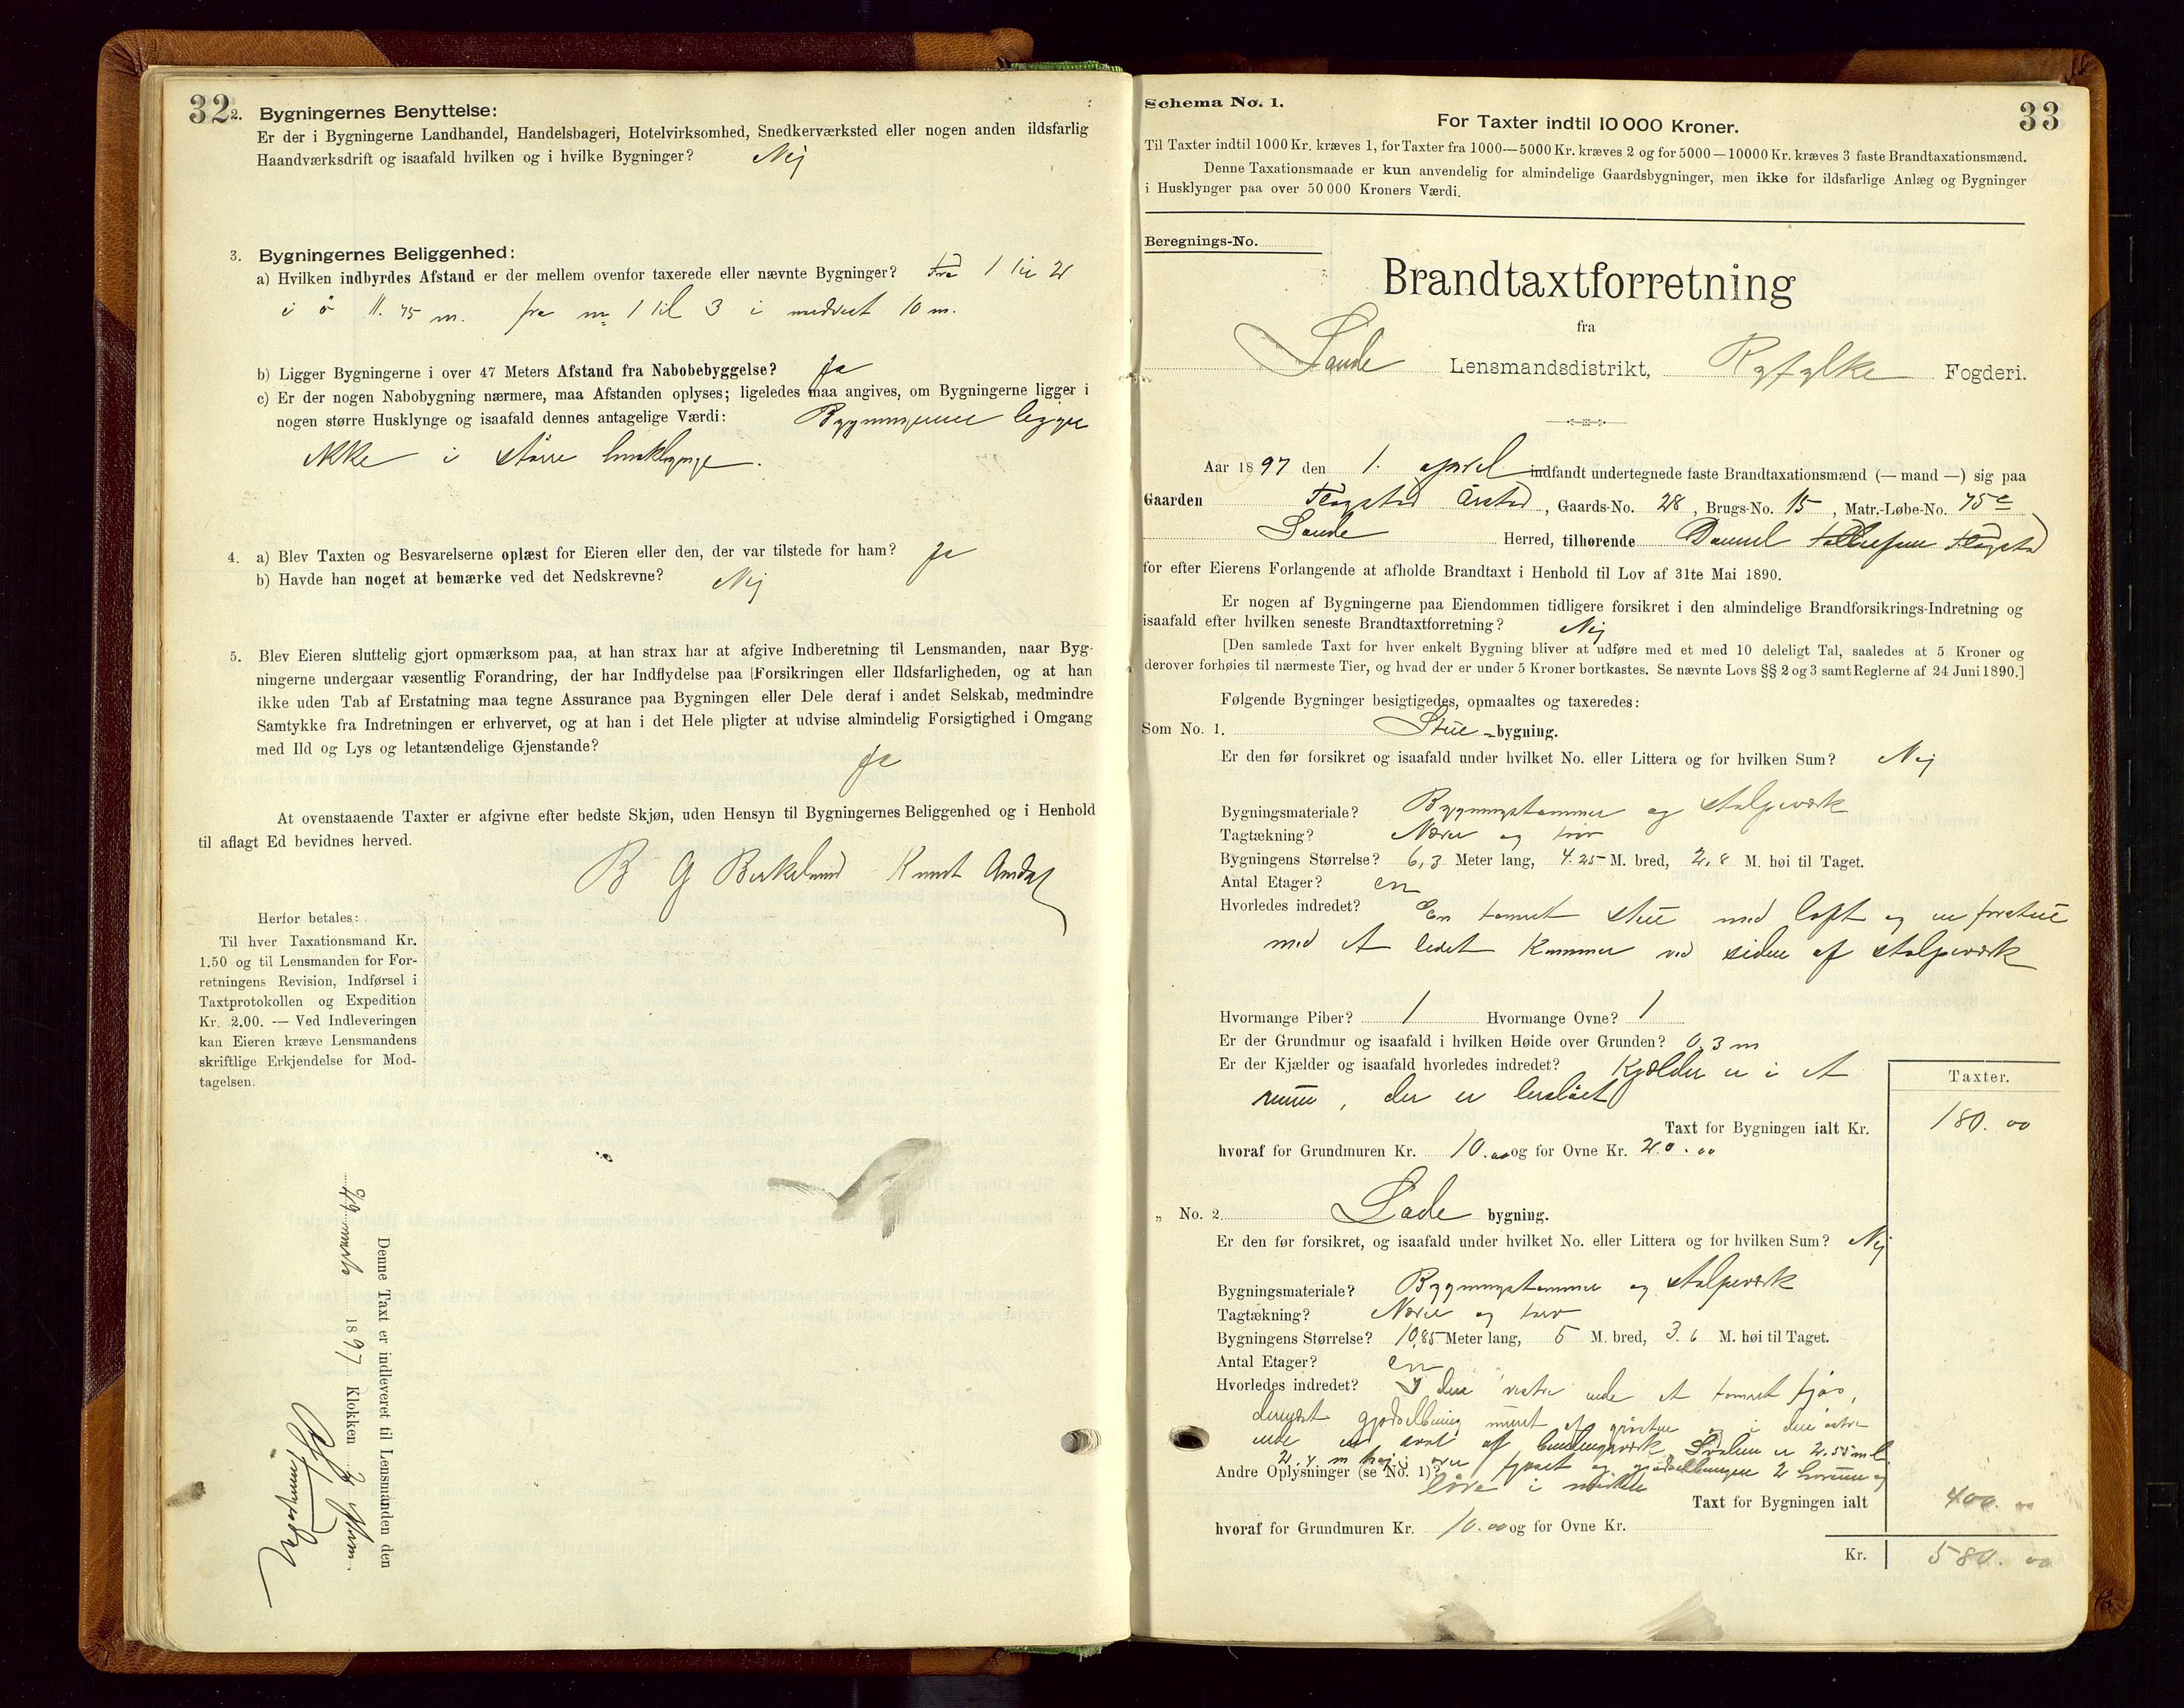 32
2. Bygningernes Benyttelse:
Er der i Bygningerne Landhandel, Handelsbageri, Hotelvirksomhed, Snedkerværksted eller nogen anden ildsfarlig
Haandværksdrift og isaafald hvilken og i hvilke Bygninger? Nej
3. Bygningernes Beliggenhed:
a) Hvilken indbyrdes Afstand er der mellem ovenfor taxerede eller nævnte Bygninger? Fra 1 til 2
i ö 11.75 m. fra no 1 til 3 i nordvest 10 m.
b) Ligger Bygningerne i over 47 Meters Afstand fra Nabobebyggelse? Ja
c) Er der nogen Nabobygning nærmere, maa Afstanden oplyses; ligeledes maa angives, om Bygningerne ligger i
nogen større Husklynge og isaafald dennes antagelige Værdi: Bygningerne ligger
ikke i større husklynge.
4. a) Blev Taxten og Besvarelserne oplæst for Eieren eller den, der var tilstede for ham? Ja
b) Havde han noget at bemærke ved det Nedskrevne? Nej
5. Blev Eieren sluttelig gjort opmærksom paa, at han strax har at afgive Indberetning til Lensmanden, naar Byg-
ningerne undergaar væsentlig Forandring, der har Indflydelse paa Forsikringen eller Ildsfarligheden, og at han
ikke uden Tab af Erstatning maa tegne Assurance paa Bygningen eller Dele deraf i andet Selskab, medmindre
Samtykke fra Indretningen er erhvervet, og at han i det Hele pligter at udvise almindelig Forsigtighed i Omgang
med Ild og Lys og letantændelige Gjenstande?
Ja
At ovenstaaende Taxter er afgivne efter bedste Skjøn, uden Hensyn til Bygningernes Beliggenhed og i Henhold
til aflagt Ed bevidnes herved.
B G Birkeland Knut Amdal
Herfor betales:
Til hver Taxationsmand Kr.
1.50 og til Lensmanden for For-
retningens Revision, Indførsel i
Taxtprotokollen og Expedition
Kr. 2.00. — Ved Indleveringen
kan Eieren kræve Lensmandens
skriftlige Erkjendelse for Mod-
tagelsen.
Denne Taxt er indleveret til Lensmanden den
29 marts 1897 Klokken 2
33
Schema No. 1.
For Taxter indtil 10 000 Kroner.
Til Taxter indtil 1000 Kr. kræves 1, for Taxter fra 1000—5000 Kr. kræves 2 og for 5000—10000 Kr. kræves 3 faste Brandtaxationsmænd.
Denne Taxationsmaade er kun anvendelig for almindelige Gaardsbygninger, men ikke for ildsfarlige Anlæg og Bygninger
i Husklynger paa over 50 000 Kroners Værdi.
Beregnings-No.
Brandtaxtforretning
fra
Sande Lensmandsdistrikt, Ryfylke Fogderi.
Aar 1897 den 1. april indfandt undertegnede faste Brandtaxationsmænd (— mand —) sig paa
Gaarden Flogstad Årstad, Gaards-No. 28, Brugs-No. 15, Matr.-Løbe-No. 75c
Sande Herred, tilhørende Daniel Tollefsen Flogstad
for efter Eierens Forlangende at afholde Brandtaxt i Henhold til Lov af 31te Mai 1890.
Er nogen af Bygningerne paa Eiendommen tidligere forsikret i den almindelige Brandforsikrings-Indretning og
isaafald efter hvilken seneste Brandtaxtforretning? Nej
[Den samlede Taxt for hver enkelt Bygning bliver at udføre med et med 10 deleligt Tal, saaledes at 5 Kroner og
derover forhøies til nærmeste Tier, og hvad der er under 5 Kroner bortkastes. Se nævnte Lovs §§ 2 og 3 samt Reglerne af 24 Juni 1890.]
Følgende Bygninger besigtigedes, opmaaltes og taxeredes:
Som No. 1. Stue-bygning.
Er den før forsikret og isaafald under hvilket No. eller Littera og for hvilken Sum? Nej
Bygningsmateriale? Bygningstømmer og stolpeværk
Tagtækning? Næver og torv
Bygningens Størrelse? 6,3 Meter lang, 4.25 M. bred, 2,8 M. høi til Taget.
Antal Etager? en
Hvorledes indredet? En tømret stue med loft og en forstue
med et lidet kammer ved siden af stolpeværk
Hvormange Piber? 1 Hvormange Ovne? 1
Er der Grundmur og isaafald i hvilken Høide over Grunden? 0.3 m
Er der Kjælder og isaafald hvorledes indredet? Kjælder er i et
rum, der er
Taxter.
Taxt for Bygningen ialt Kr. 180.00
hvoraf for Grundmuren Kr. 10.00 og for Ovne Kr. 20.00
„ No. 2 Lade bygning.
Er den før forsikret, og isaafald under hvilket No. eller Littera og for hvilken Sum? Nej
Bygningsmateriale? Bygningstømmer og stolpeværk
Tagtækning? Næver og torv
Bygningens Størrelse? 10,85 Meter lang, 5 M. bred, 3.6 M. høi til Taget.
Antal Etager? en
Hvorledes indredet? I den vestre ende et tømret fjøs,
dernæst gjødselbinge muret af gråsten og i den østre
ende en sval af bindingsværk. Svalen er 2.55 m l.
2,4 m høj. over fjøset og gjødselbingen 2 lorum og
Andre Oplysninger (se No. 1)? løve i midten
Taxt for Bygningen ialt 400.00
hvoraf for Grundmuren Kr. 10.00 og for Ovne Kr.
Kr. 580.00